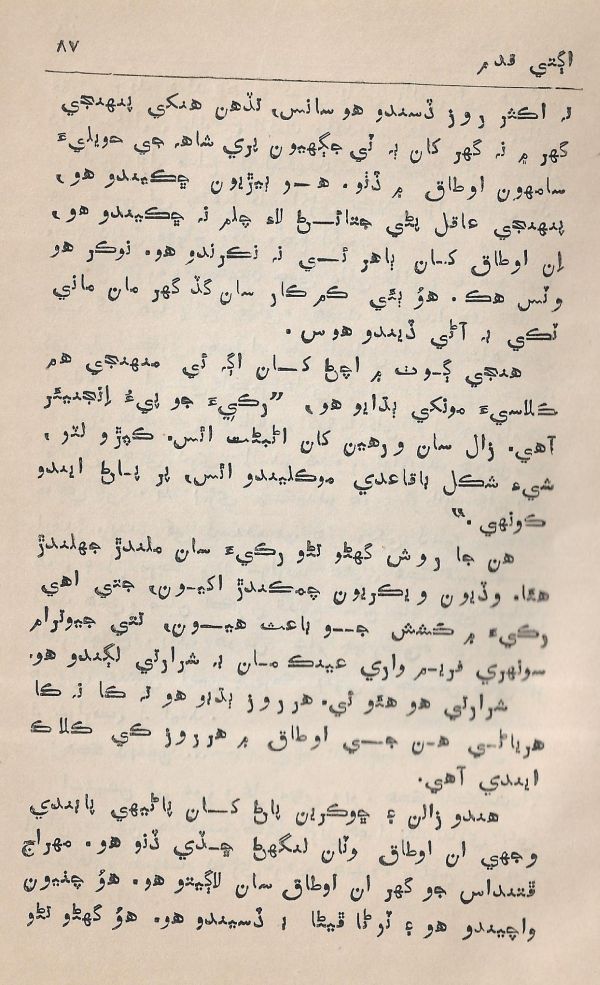 اڳتي قدم
٨٧
نہ اڪثر روز ڏسندو هو سانس، تڏهن هنکي پنهنجي
گهر ۾ نہ گهر کان ٻہ ٽي جڳهيون پري شاهہ جي حويليءَ
سامهون اوطاق ۾ ڏٺو. هو ٻيڙيون ڇڪيندو هو،
پنهنجي عاقل پٽي جتائڻ لاءِ چلم نہ ڇڪيندو هو،
اِن اوطاق کان ٻاهر ئي نہ نڪرندو هو. نوڪر هو
وٽس هڪ. هؤ ٻئي ڪم ڪار سان گڏ گهر مان ماني
ٽڪي بہ آڻي ڏيندو هوس.
هنجي ڳوٺ ۾ اچڻ کان اڳہ ئي منهنجي هم
ڪلاسيءَ مونکي ٻڌايو هو، ”رڪيءَ جو پيءُ اِنجنيئر
آهي. زال سان ورهين کان اڻبڻت اٿس. ڪپڙو لٽو،
شيءِ شڪل باقاعدي موڪليندو اٿس، پر پاڻ ايندو
ڪونهي.“
هن جا روش گهڻو تڻو رڪيءَ سان ملندڙ جهلندڙ
هئا. وڏيون ويڪريون چمڪندڙ اکيون، جتي اهي
رڪيءَ ۾ ڪشش جو باعث هيون، تتي جيوترام
سونهري فريم واري عينڪ مان بہ شرارتي لڳندو هو.
شرارتي هو هئو ئي. هر روز ٻڌبو هو تہ ڪا نہ ڪا
هرياڻي هن جي اوطاق ۾ هر روز ڪي ڪلاڪ
ايندي آهي.
هندو زالن ۽ ڇوڪرين پاڻ کان پاڻيهي پابندي
وجهي ان اوطاق وٽان لنگهڻ ڇڏي ڏنو هو. مهراج
ڦتنداس جو گهر ان اوطاق سان لاڳيتو هو. هؤ چٺيون
واچيندو هو ۽ ٽوڻا ڦيڻا ۽ ڏسيندو هو. هؤ گهڻو تڻو